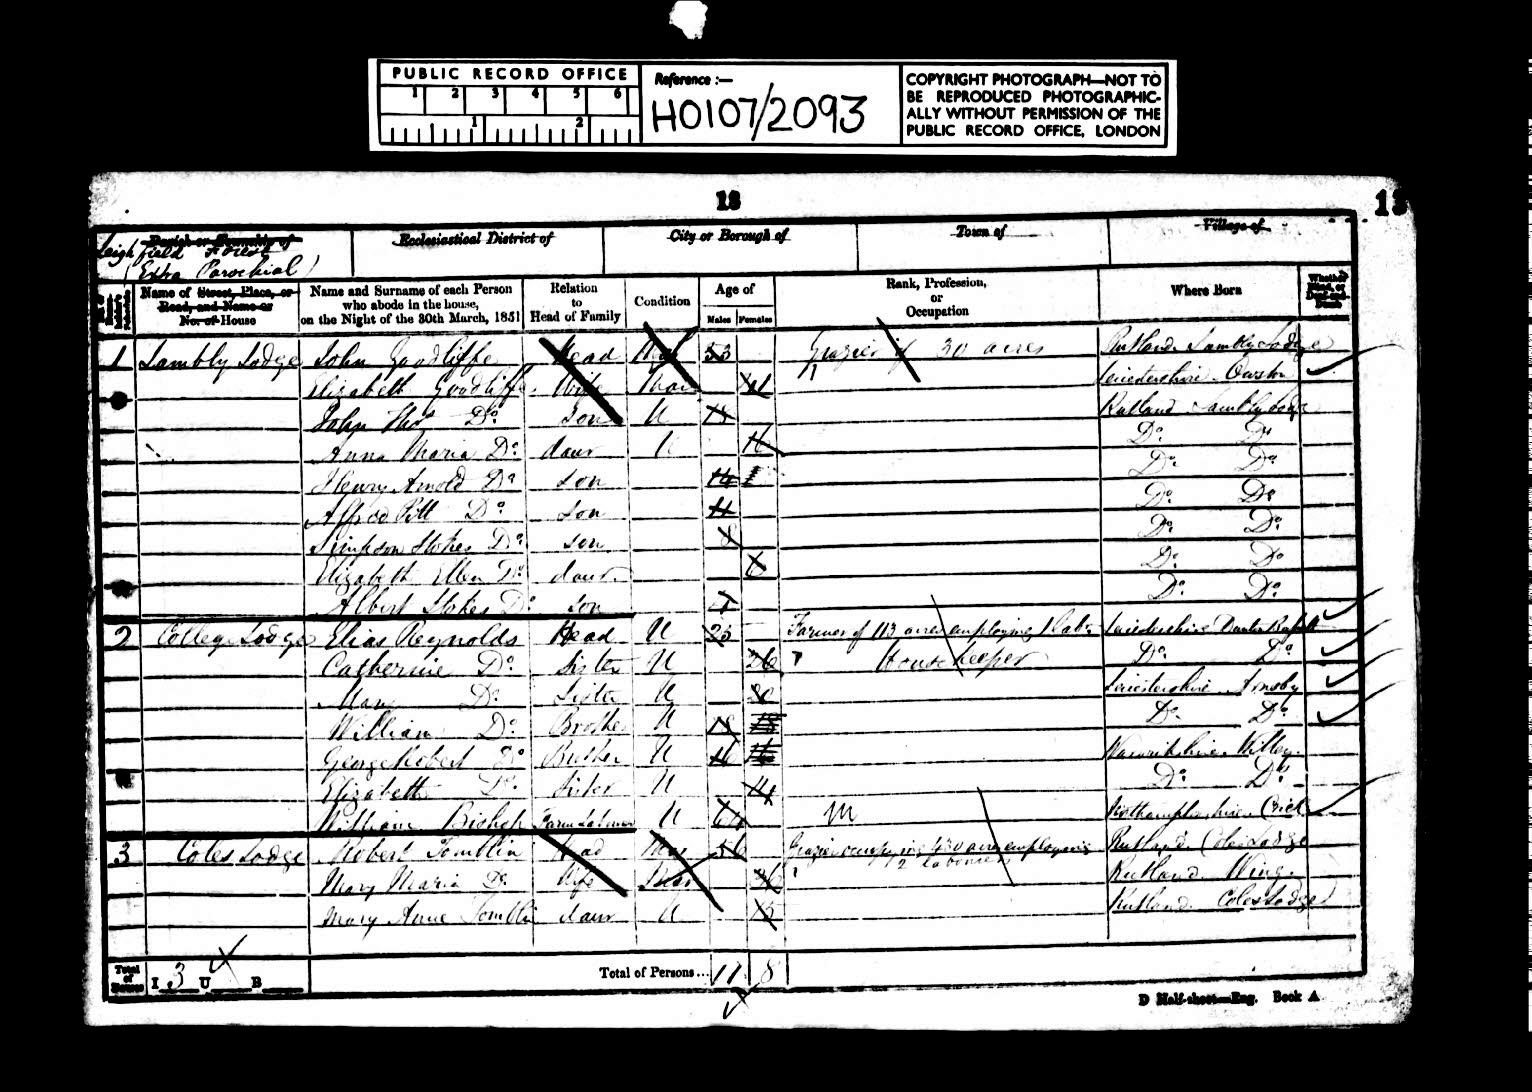 PUBLIC RECORD OFFICE
1 2 3 4 5 6
1 2
Reference :—
HO107/2093
COPYRIGHT PHOTOGRAPH—NOT TO
BE REPRODUCED PHOTOGRAPHIC-
ALLY WITHOUT PERMISSION OF THE
PUBLIC RECORD OFFICE, LONDON
13
Parish or Township of
Leighfield Forest
(Extra Parochial)
Ecclesiastical District of
City or Borough of
Town of
Village of
Name of Street, Place, or Road, and Name or No. of House
Name and Surname of each Person who abode in the house, on the Night of the 30th March, 1851
Relation to Head of Family
Condition
Age of
Males Females
Rank, Profession, or Occupation
Where Born
Whether Blind, or Deaf-and-Dumb
1 Lambly Lodge John Goodliffe Head Mar 53 Grazier of 30 acres Rutland Lambly Lodge
Elizabeth Goodliffe Wife Mar 41 Leicestershire Owston
John Thos Do Son U 18 Rutland Lambly Lodge
Anna Maria Do daur U 16 Do Do
Henry Arnold Do Son 14 Do Do
Alfred Pitt Do Son 11 Do Do
Simpson Stokes Do Son 8 Do Do
Elizabeth Ellen Do daur 6 Do Do
Albert Stokes Do Son Do Do
2 College Lodge Elias Reynolds Head U 23 Farmer of 113 acres employing 1 labr Leicestershire
Catherine Do Sister U 26 House Keeper Do Do
Mary Do Sister U 20 Leicestershire Arnsby
William Do Brother U 18 Do Do
George Robert Do Brother U 16 Warwickshire
Elizabeth Do Sister U 14 Do Do
William Bishop Farm Labourer U 64 Northamptonshire
3 Coles Lodge Robert Tomblin Head Mar 56 Grazier occupying 430 acres employing 2 labourers Rutland Coles Lodge
Mary Maria Do Wife Mar 36 Rutland Wing
Mary Anne Tomblin daur U 13 Rutland Coles Lodge
Total of Houses I 3 U B Total of Persons... 11 8
D Half-sheet—Eng. Book A